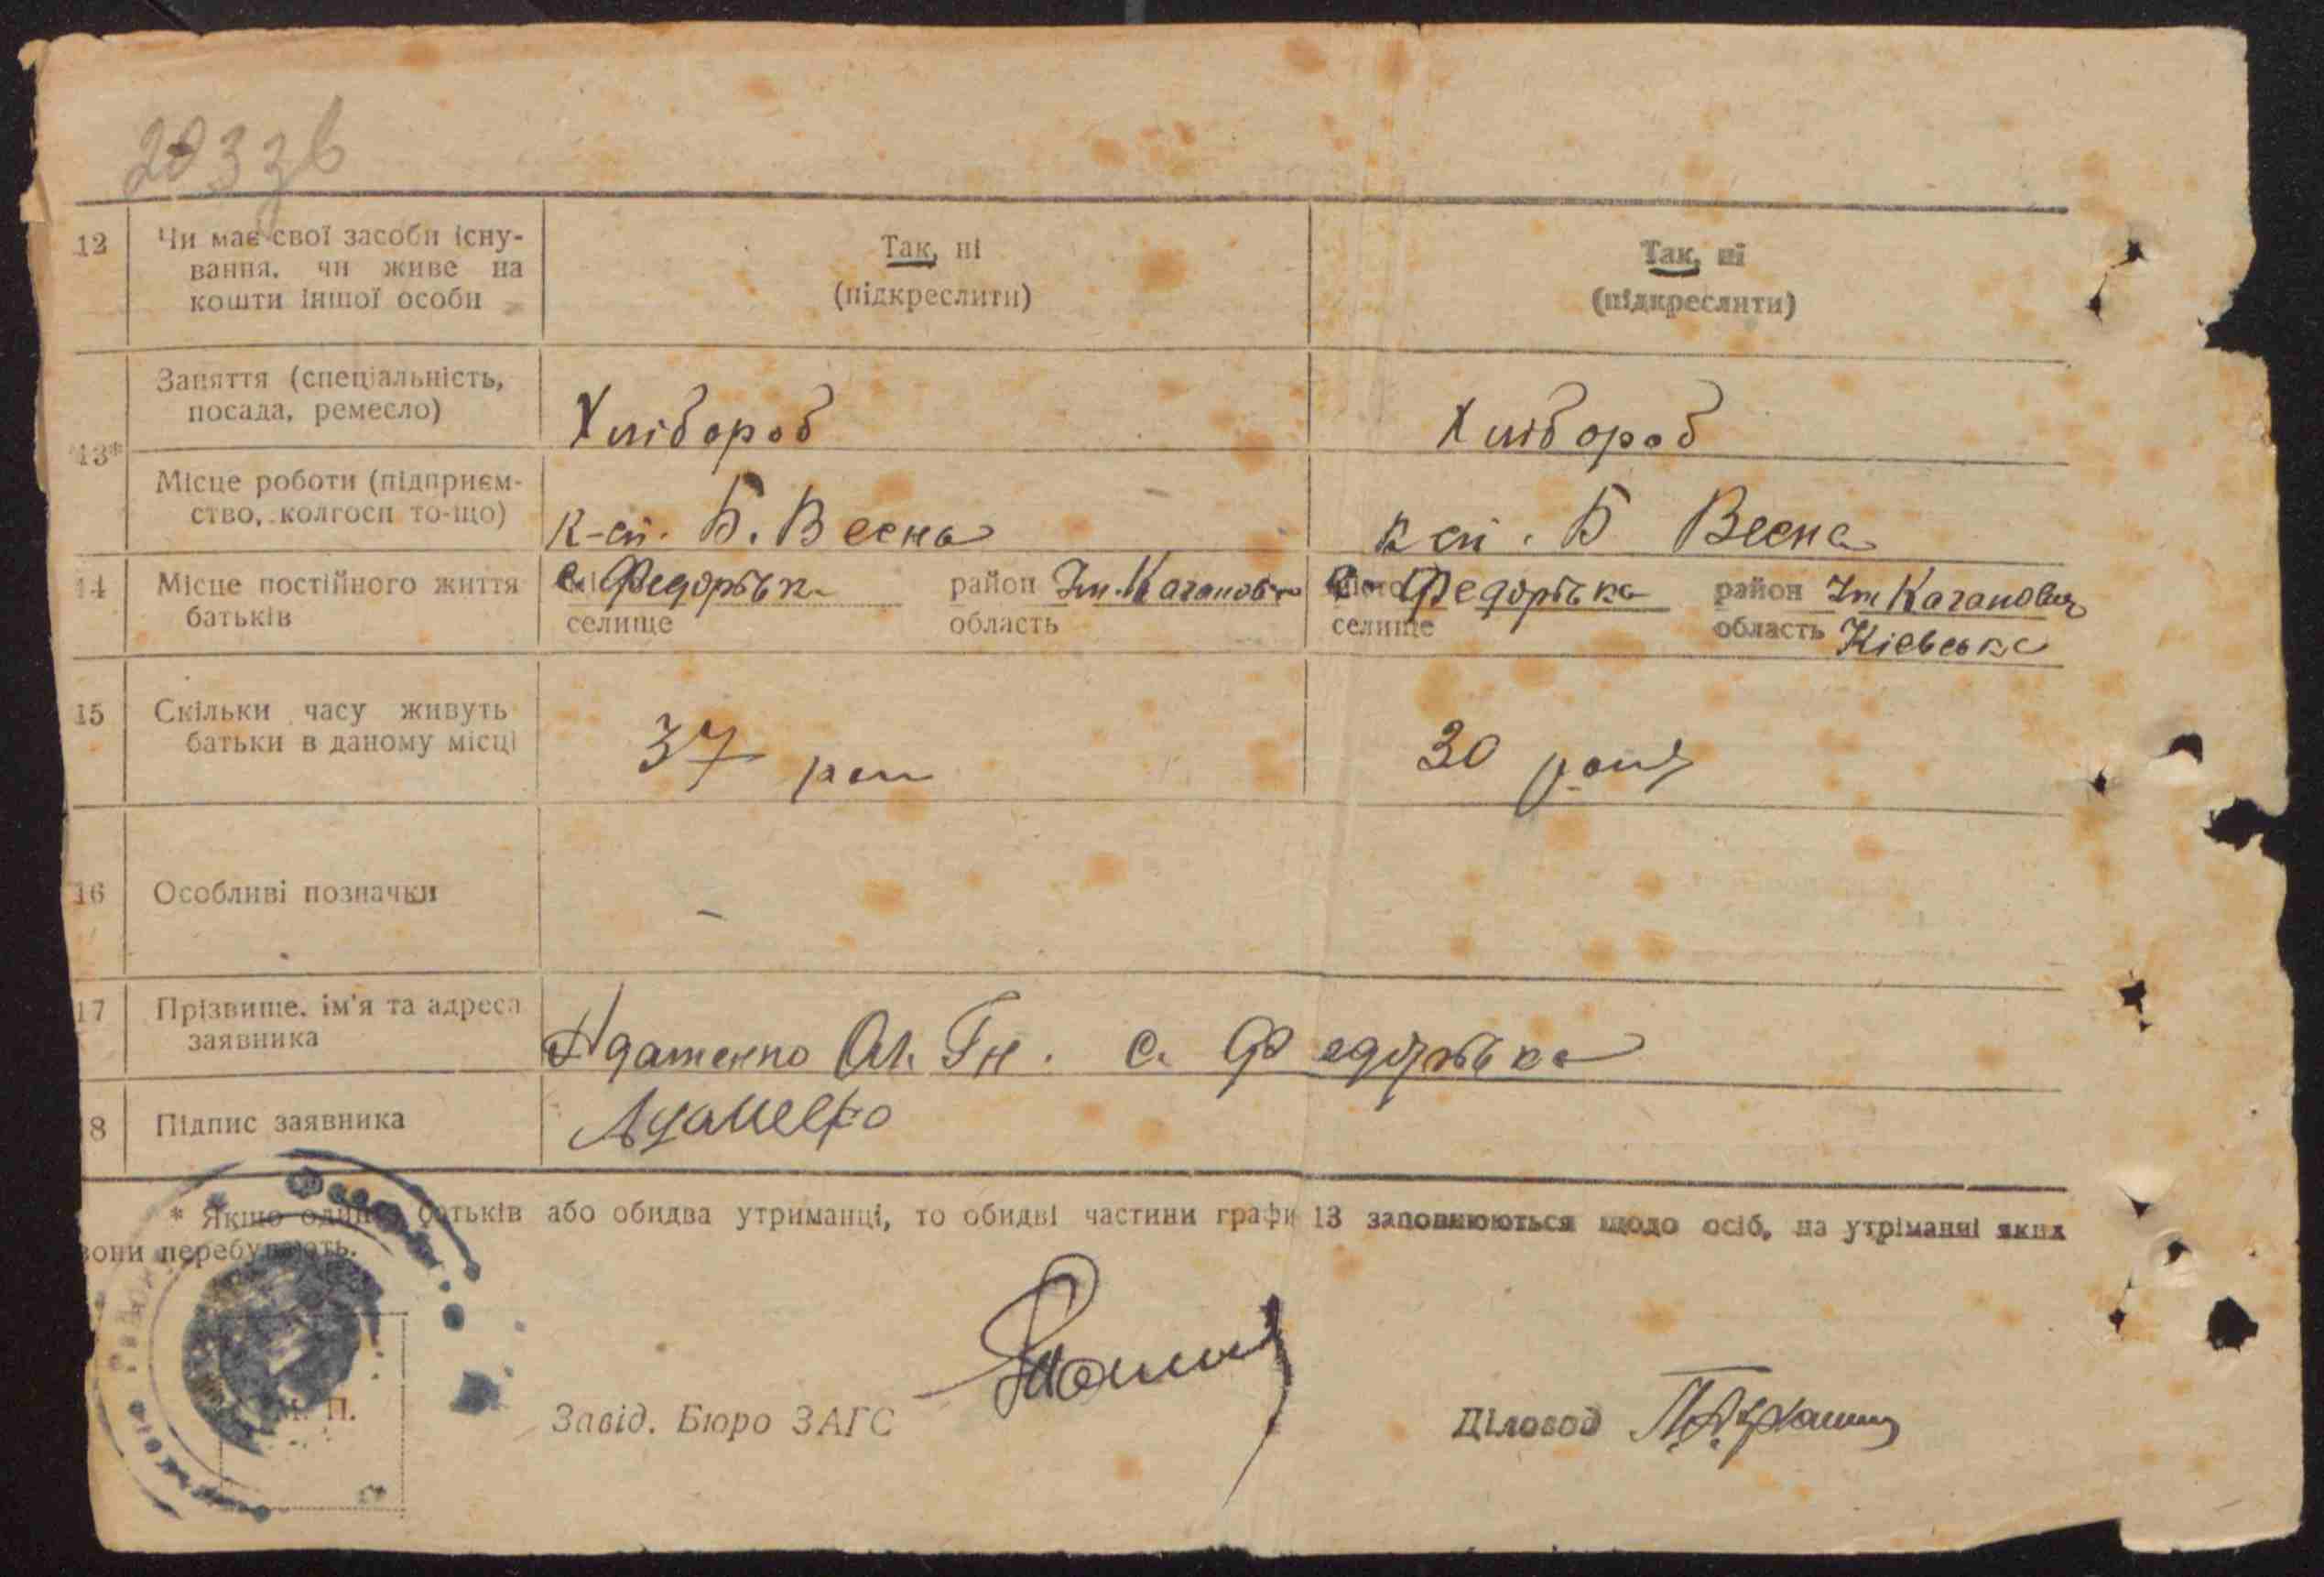 203 зв
12 Чи має свої засоби існу-
вання, чи живе на
кошти іншої особи
Так, ні
(підкреслити)
Так, ні
(підкреслити)
13*
Заняття (спеціальність,
посада, ремесло)
Хлібороб
Хлібороб
Місце роботи (підприєм-
ство, колгосп то-що)
К-сп. Б. Весна
К сп. Б Весна
14 Місце постійного життя
батьків
с. Федорівка район Ім. Кагановича
селище область
с. Федорівка район Ім Кагановича
селище область Кієвська
15 Скільки часу живуть
батьки в даному місці
37 рет
30 років
16 Особливі позначки
–
17 Прізвище, ім'я та адреса
заявника
Адаменко Ол. Гн. с. Федорівка
18 Підпис заявника
Адаменко
* Якщо один з батьків або обидва утриманці, то обидві частини графи 13 заповнюються щодо осіб, на утріманні яких
вони перебувають.
М. П.
Завід. Бюро ЗАГС
Діловод